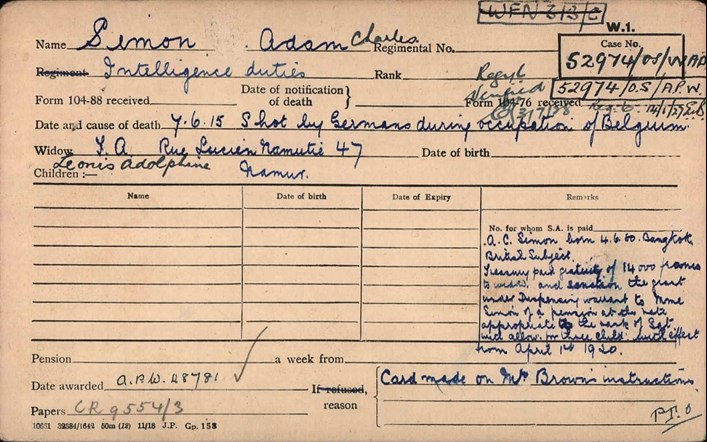 WFN 313/C
W.1.
Name Simon Adam Charles Regimental No.
Case No.
52974/OS/W AP
Regiment Intelligence duties Rank
52974/O.S/A.P.W.
Form 104-88 received Date of notification of death } Form 104-76 received
Date and cause of death 7.6.15 Shot by Germans during occupation of Belgium
Widow Rue Lucien Namutie 47 Date of birth
Leonis Adolphine
Children :— Namur.
Name Date of birth Date of Expiry Remarks
No. for whom S.A. is paid
A.C. Simon born 4.6.80. Bangkok
British Subject.
Treasury paid gratuity of 14000 francs
to widow. and sanction the grant
under Dispensing warrant to Mme
Simon of a pension at the rate
appropriate to the rank of Sgt
with allow. for three child. with effect
from April 1st 1920.
Pension a week from
Date awarded A.P.W. 48781
If refused, reason
Card made on Mr Brown's instructions
Papers CR 9554/3
P.T.O
10631 32384/1642 50m (12) 11/18 J.P. Gp. 158